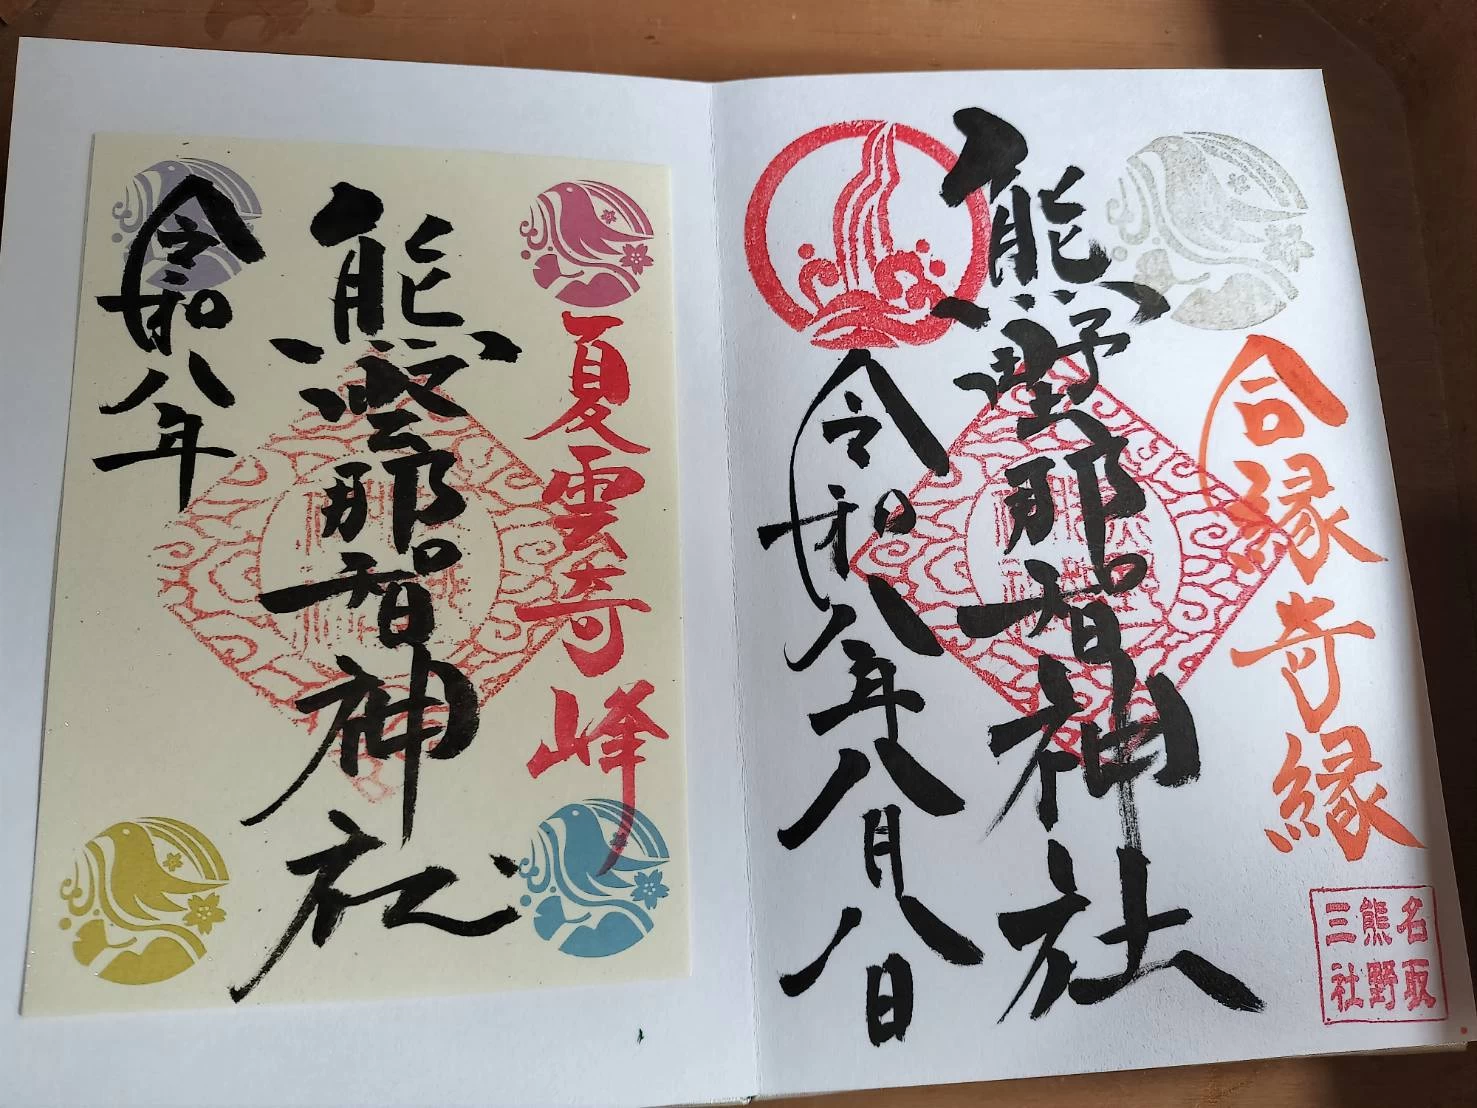 合縁奇縁
熊野那智神社
令和八年八月八日
名取
熊野
三社
夏雲奇峰
熊野那智神社
令和八年